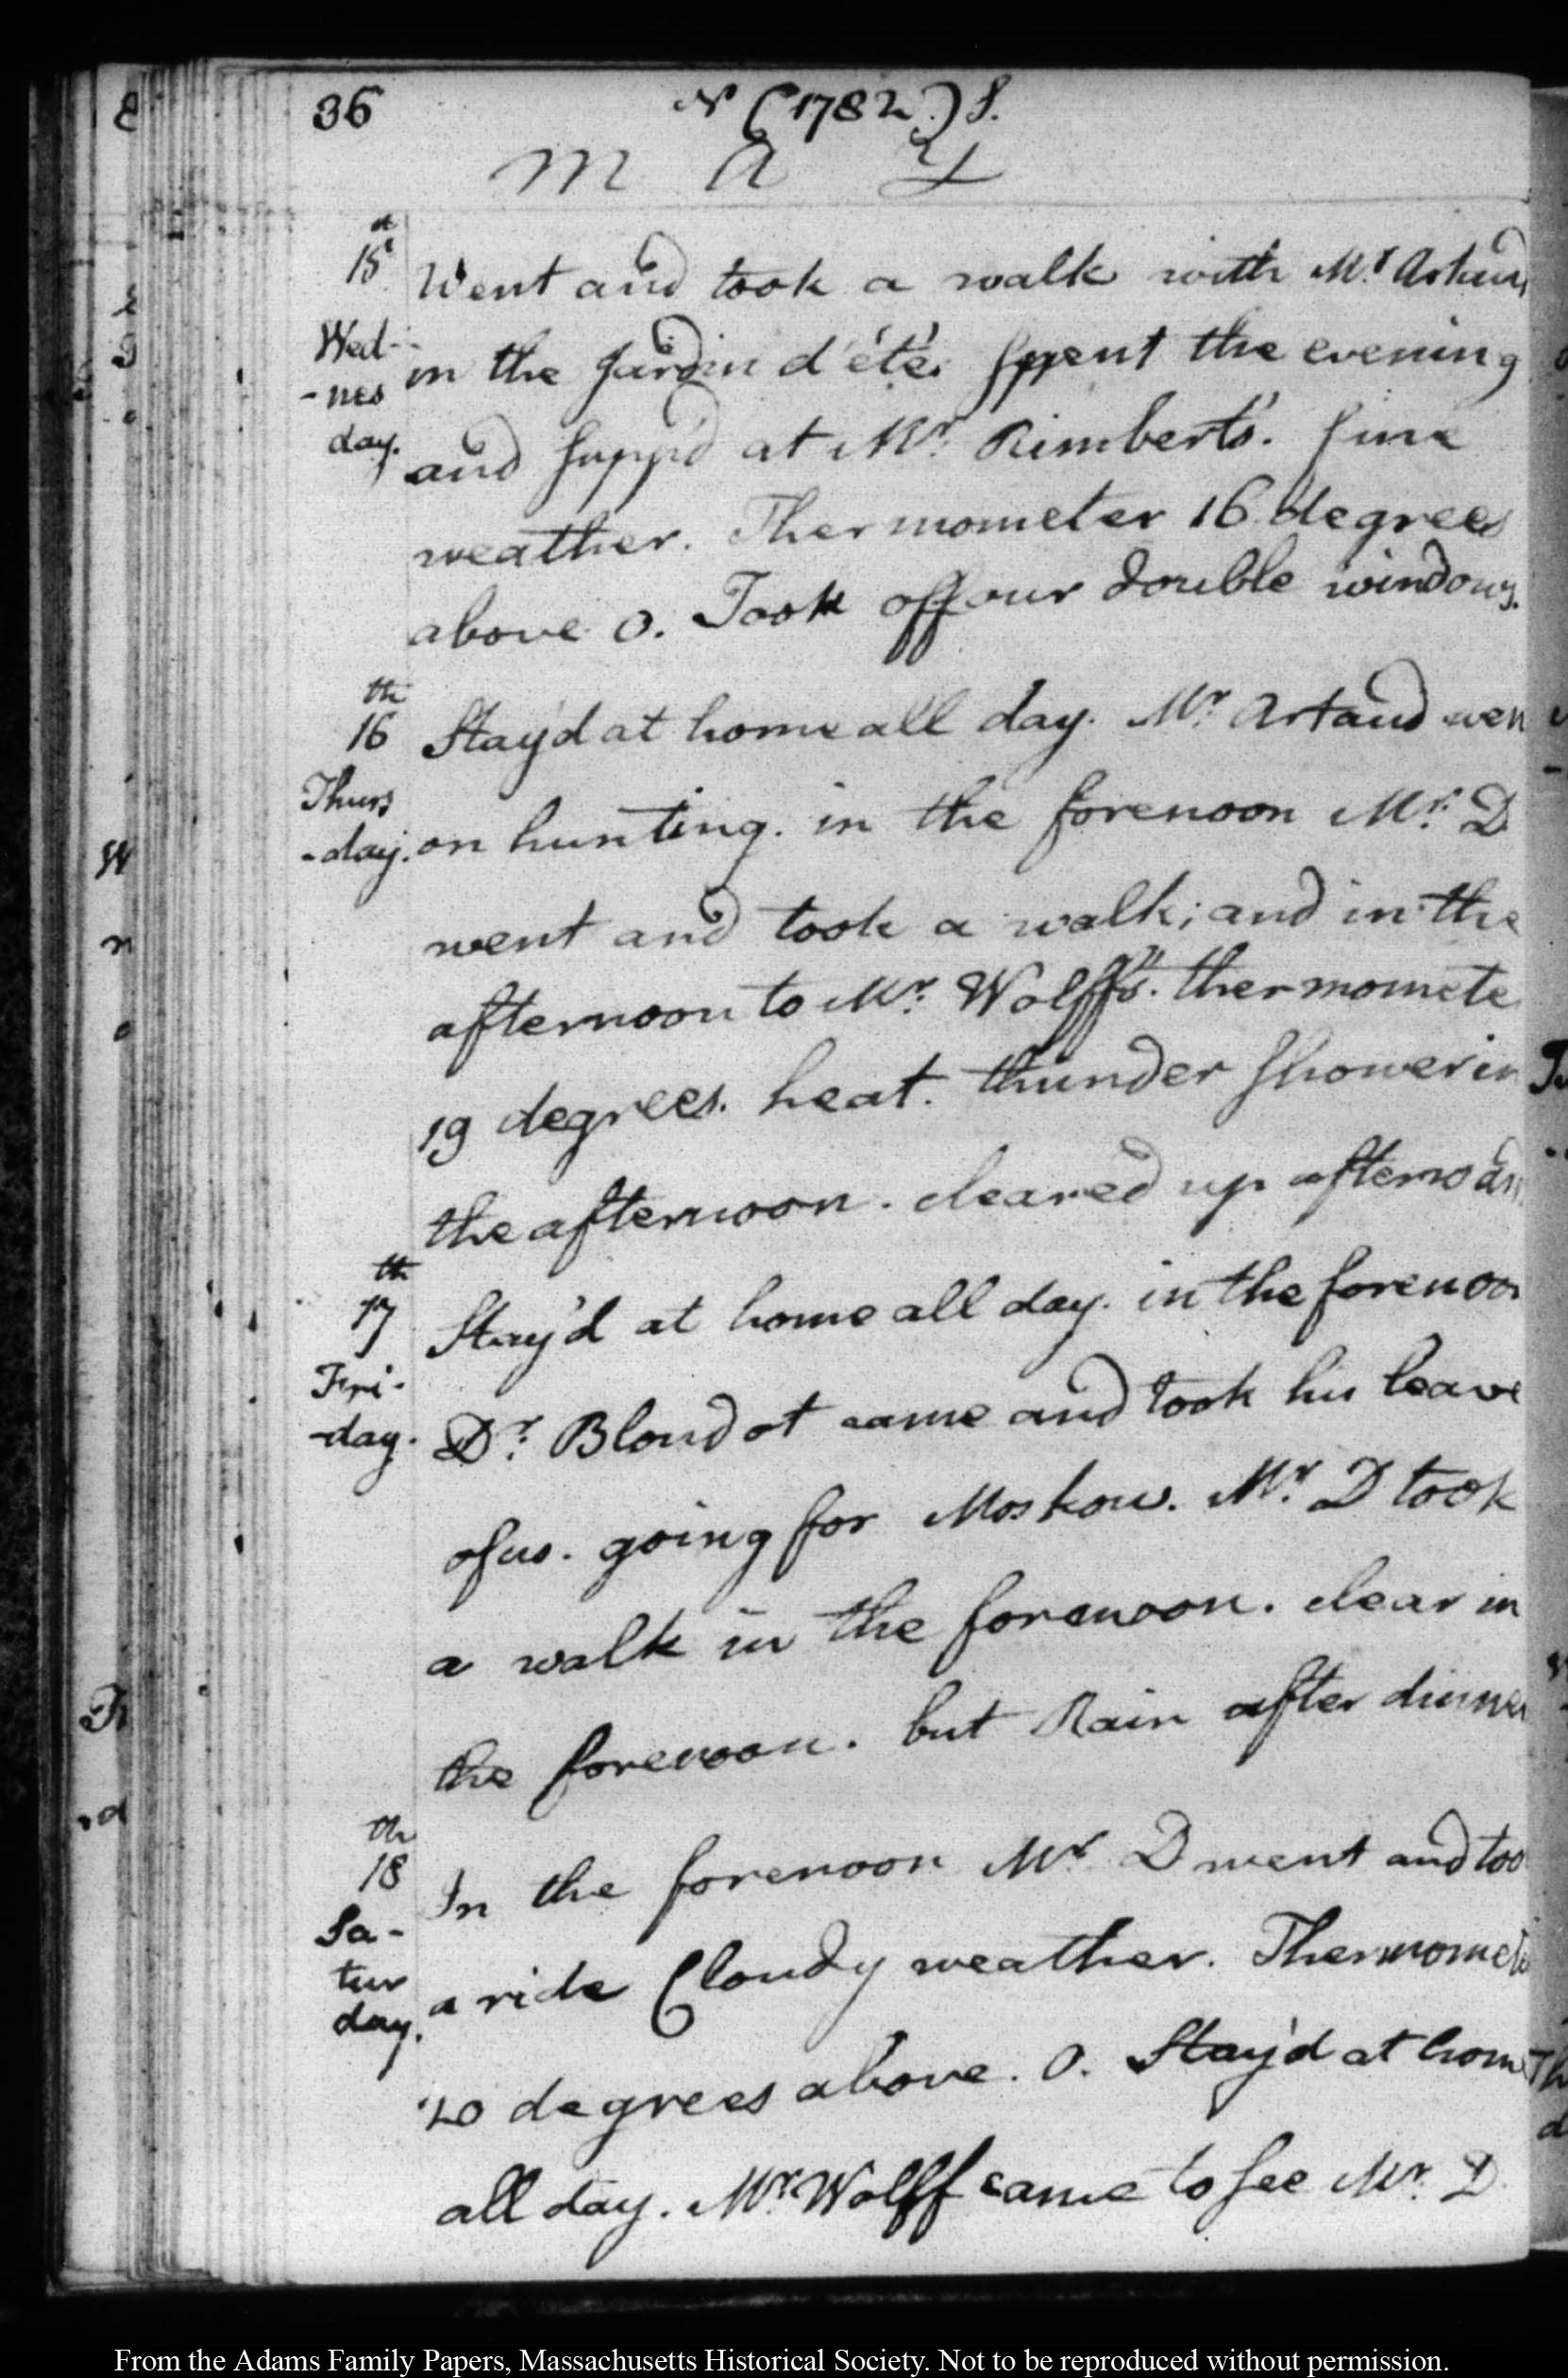 36 N (1782.) S.
M A Y
15
Wednesday.
Went and took a walk with Mr. Artaud
in the Jardin d'été. Spent the evening
and supp'd at Mr. Rimbert's. fine
weather. Thermometer 16 degrees
above 0. Took off our double windows.
th
16
Thurs
-day.
Stay'd at home all day. Mr. Artaud wen
on hunting. in the forenoon Mr. D
went and took a walk; and in the
afternoon to Mr. Wolff's. thermomete
19 degrees. heat. thunder shower in
the afternoon. cleared up afterwa
th
17
Fri-
-day.
Stay'd at home all day. in the forenoon
Dr. Blondot came and took his leave
of us. going for Moskow. Mr. D took
a walk in the forenoon. clear in
the forenoon. but Rain after dinner
th
18
Sa-
tur
day.
In the forenoon Mr. D went and too
a ride Cloudy weather. Thermomete
20 degrees above. 0. Stay'd at home
all day. Mr. Wolff came to see Mr. D.
From the Adams Family Papers, Massachusetts Historical Society. Not to be reproduced without permission.